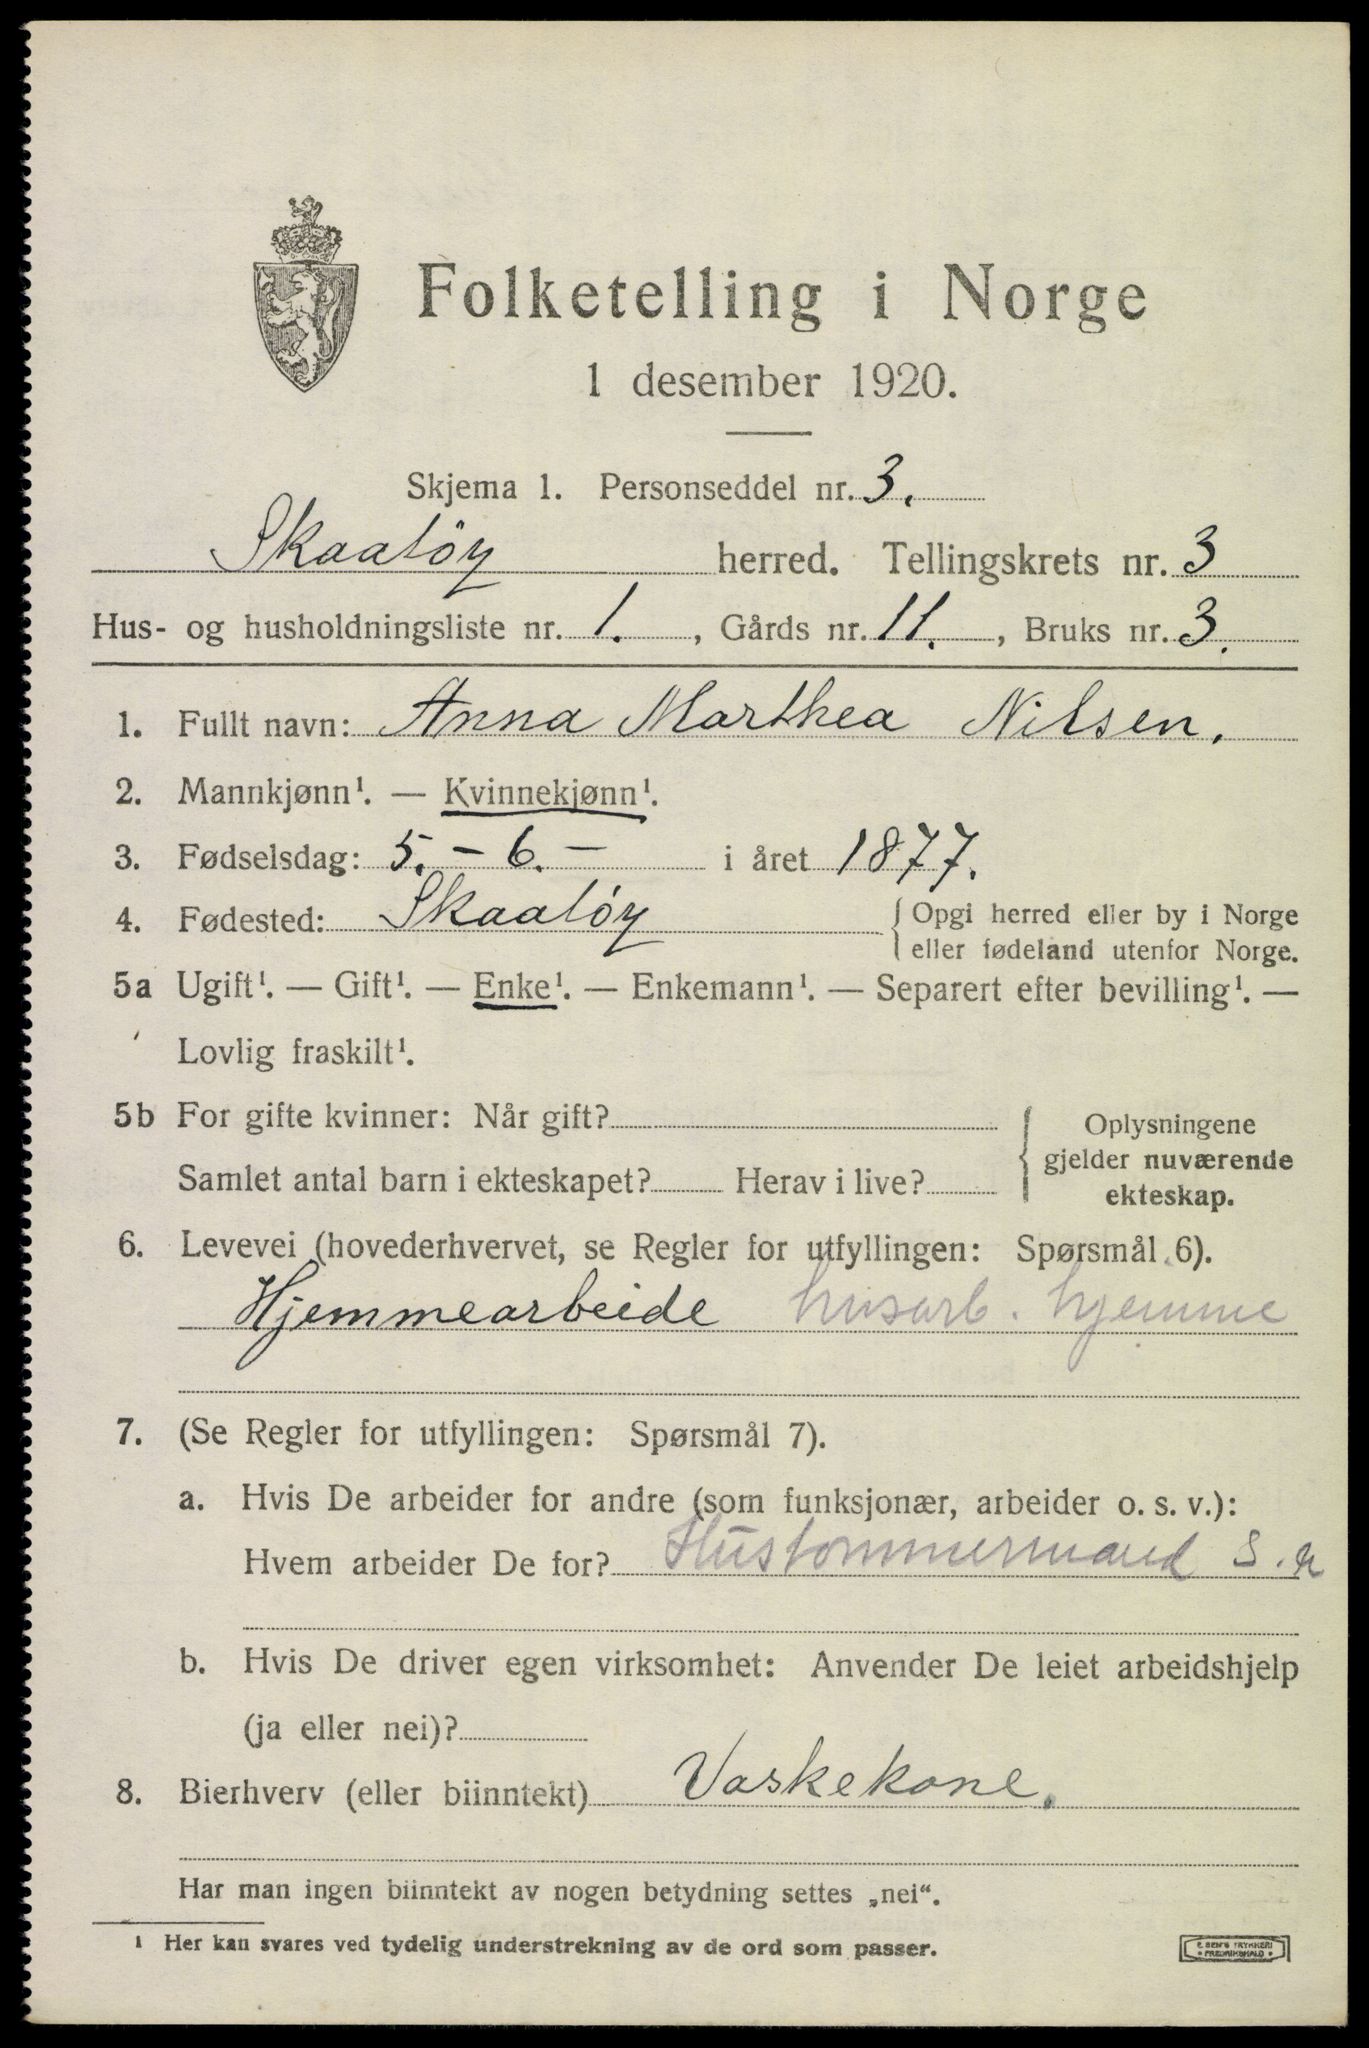 Folketelling i Norge
1 desember 1920.
Skjema 1. Personseddel nr. 3.
Skaatöy herred. Tellingskrets nr. 3
Hus- og husholdningsliste nr. 1., Gårds nr. 11., Bruks nr. 3.
1. Fullt navn: Anna Marthea Nilsen.
2. Mannkjønn¹. — Kvinnekjønn¹.
3. Fødselsdag: 5. – 6. – i året 1877.
4. Fødested: Skaatöy { Opgi herred eller by i Norge
eller fødeland utenfor Norge.
5a Ugift¹. — Gift¹. — Enke¹. — Enkemann¹. — Separert efter bevilling¹. —
Lovlig fraskilt¹.
5b For gifte kvinner: Når gift?
Samlet antal barn i ekteskapet? Herav i live?
{ Oplysningene
gjelder nuværende
ekteskap.
6. Levevei (hovederhvervet, se Regler for utfyllingen: Spørsmål 6).
Hjemmearbeide husarb. hjemme
7. (Se Regler for utfyllingen: Spørsmål 7).
a. Hvis De arbeider for andre (som funksjonær, arbeider o. s. v.):
Hvem arbeider De for? Hustømmermand S.
b. Hvis De driver egen virksomhet: Anvender De leiet arbeidshjelp
(ja eller nei)?
8. Bierhverv (eller biinntekt) Vaskekone.
Har man ingen biinntekt av nogen betydning settes „nei“.
¹ Her kan svares ved tydelig understrekning av de ord som passer.
TRYKKERI
FREDRIKSHALD